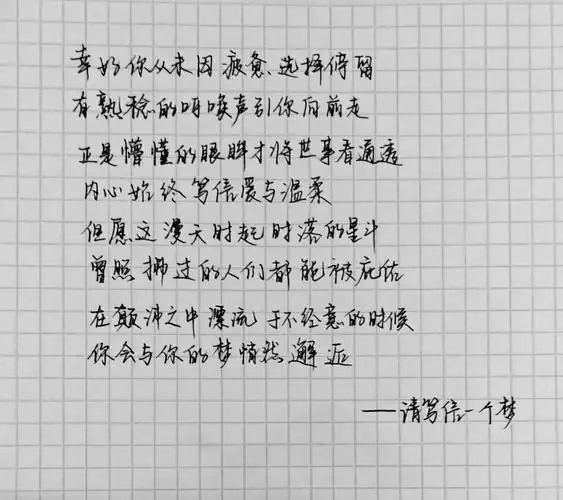 幸好你从未因疲惫、选择停留
有熟稔的呼唤声引你向前走
正是懵懂的眼眸才将世事看通透
内心始终笃信爱与温柔
但愿这漫天时起时落的星斗
曾照拂过的人们都能被庇佑
在颠沛之中漂流于不经意的时候
你会与你的梦悄然邂逅
——请笃信一个梦